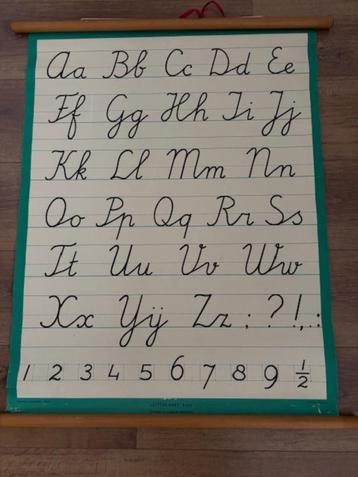 Aa Bb Cc Dd Ee
Ff Gg Hh Ii Jj
Kk Ll Mm Nn
Oo Pp Qq Rr Ss
Tt Uu Vv Ww
Xx Yÿ Zz ; ? ! , . :
1 2 3 4 5 6 7 8 9 1/2